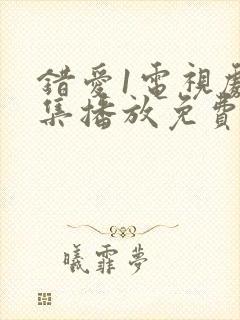 錯愛1電視劇
集播放免費
曦霏夢